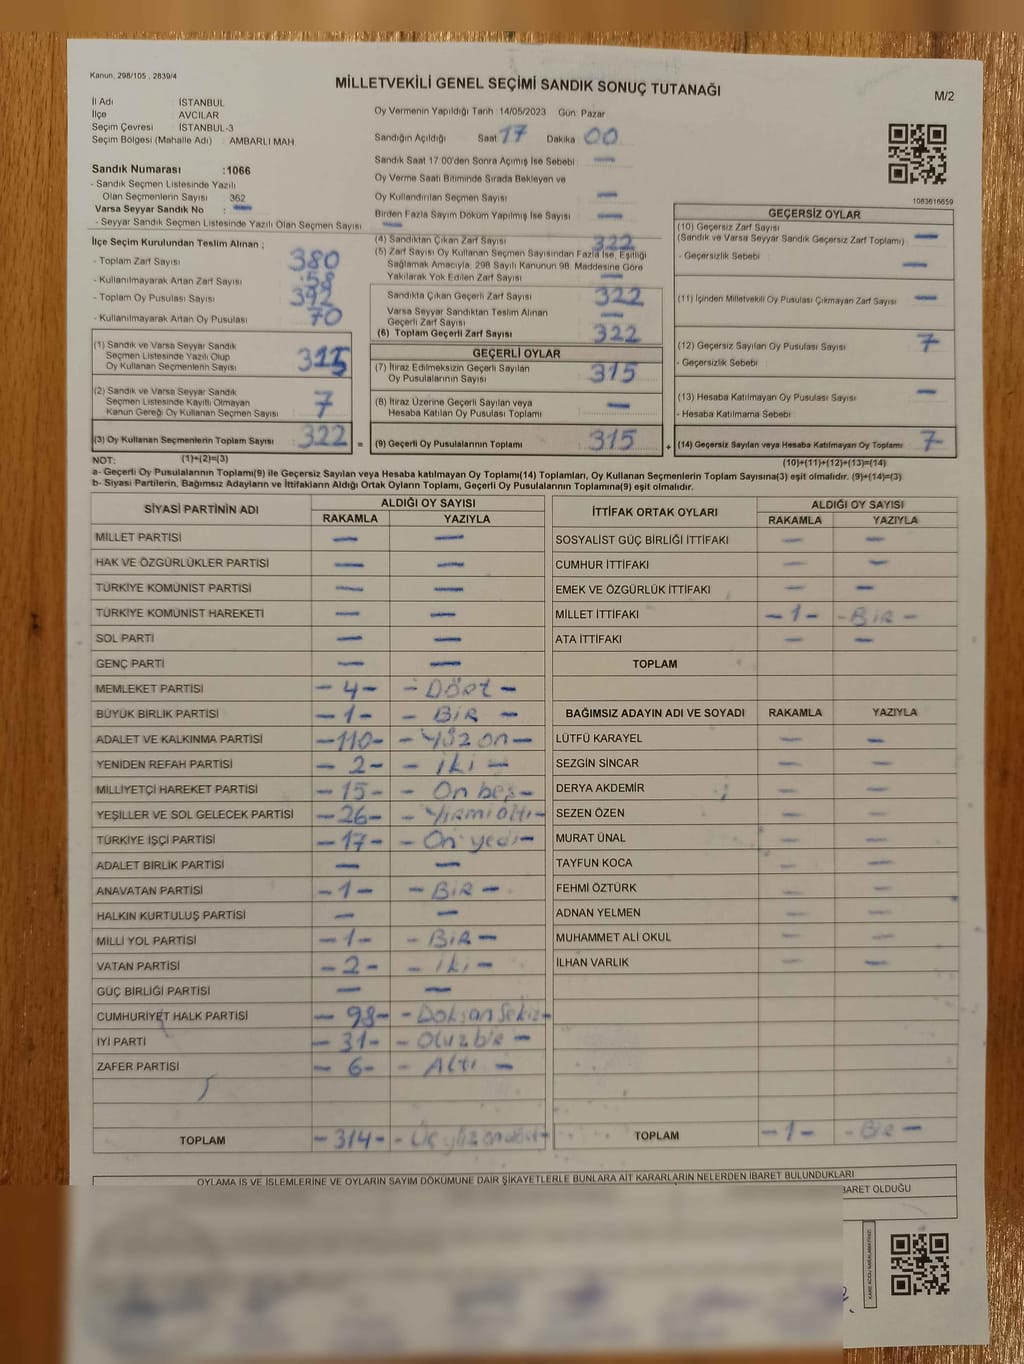 Kanun, 298/105 , 2839/4
MİLLETVEKİLİ GENEL SEÇİMİ SANDIK SONUÇ TUTANAĞI
M/2
İl Adı : İSTANBUL
İlçe : AVCILAR
Seçim Çevresi : İSTANBUL-3
Seçim Bölgesi (Mahalle Adı) : AMBARLI MAH
Oy Vermenin Yapıldığı Tarih 14/05/2023 Gün: Pazar
Sandığın Açıldığı Saat 17 Dakika 00
Sandık Saat 17.00'den Sonra Açımış İse Sebebi —
Oy Verme Saati Bitiminde Sırada Bekleyen ve
Oy Kullandırılan Seçmen Sayısı —
Birden Fazla Sayım Döküm Yapılmış İse Sayısı —
Sandık Numarası :1066
- Sandık Seçmen Listesinde Yazılı
Olan Seçmenlerin Sayısı : 362
Varsa Seyyar Sandık No : —
- Seyyar Sandık Seçmen Listesinde Yazılı Olan Seçmen Sayısı : —
İlçe Seçim Kurulundan Teslim Alınan ;
- Toplam Zarf Sayısı : 380
- Kullanılmayarak Artan Zarf Sayısı : 58
- Toplam Oy Pusulası Sayısı : 392
- Kullanılmayarak Artan Oy Pusulası : 70
(1) Sandık ve Varsa Seyyar Sandık
Seçmen Listesinde Yazılı Olup
Oy Kullanan Seçmenlerin Sayısı 315
(2) Sandık ve Varsa Seyyar Sandık
Seçmen Listesinde Kayıtlı Olmayan
Kanun Gereği Oy Kullanan Seçmen Sayısı 7
(3) Oy Kullanan Seçmenlerin Toplam Sayısı 322 =
(4) Sandıktan Çıkan Zarf Sayısı 322
(5) Zarf Sayısı Oy Kullanan Seçmen Sayısından Fazla İse, Eşitliği
Sağlamak Amacıyla, 298 Sayılı Kanunun 98. Maddesine Göre
Yakılarak Yok Edilen Zarf Sayısı —
Sandıkta Çıkan Geçerli Zarf Sayısı 322
Varsa Seyyar Sandıktan Teslim Alınan
Geçerli Zarf Sayısı —
(6) Toplam Geçerli Zarf Sayısı 322
GEÇERLİ OYLAR
(7) İtiraz Edilmeksizin Geçerli Sayılan
Oy Pusulalarının Sayısı 315
(8) İtiraz Üzerine Geçerli Sayılan veya
Hesaba Katılan Oy Pusulası Toplamı —
(9) Geçerli Oy Pusulalarının Toplamı 315 +
1083616659
GEÇERSİZ OYLAR
(10) Geçersiz Zarf Sayısı
(Sandık ve Varsa Seyyar Sandık Geçersiz Zarf Toplamı) —
- Geçersizlik Sebebi : —
(11) İçinden Milletvekili Oy Pusulası Çıkmayan Zarf Sayısı —
(12) Geçersiz Sayılan Oy Pusulası Sayısı 7
- Geçersizlik Sebebi :
(13) Hesaba Katılmayan Oy Pusulası Sayısı —
- Hesaba Katılmama Sebebi :
(14) Geçersiz Sayılan veya Hesaba Katılmayan Oy Toplamı 7
NOT: (1)+(2)=(3) (10)+(11)+(12)+(13)=(14)
a- Geçerli Oy Pusulalarının Toplamı(9) ile Geçersiz Sayılan veya Hesaba katılmayan Oy Toplamı(14) Toplamları, Oy Kullanan Seçmenlerin Toplam Sayısına(3) eşit olmalıdır. (9)+(14)=(3)
b- Siyasi Partilerin, Bağımsız Adayların ve İttifakların Aldığı Ortak Oyların Toplamı, Geçerli Oy Pusulalarının Toplamına(9) eşit olmalıdır.
SİYASİ PARTİNİN ADI ALDIĞI OY SAYISI
RAKAMLA YAZIYLA
MİLLET PARTİSİ — —
HAK VE ÖZGÜRLÜKLER PARTİSİ — —
TÜRKİYE KOMÜNİST PARTİSİ — —
TÜRKİYE KOMÜNİST HAREKETİ — —
SOL PARTİ — —
GENÇ PARTİ — —
MEMLEKET PARTİSİ -4- - Dört -
BÜYÜK BİRLİK PARTİSİ -1- - BİR -
ADALET VE KALKINMA PARTİSİ -110- - Yüz on -
YENİDEN REFAH PARTİSİ -2- - iki -
MİLLİYETÇİ HAREKET PARTİSİ -15- - On beş -
YEŞİLLER VE SOL GELECEK PARTİSİ -26- - Yirmi altı -
TÜRKİYE İŞÇİ PARTİSİ -17- - On yedi -
ADALET BİRLİK PARTİSİ — —
ANAVATAN PARTİSİ -1- - BİR -
HALKIN KURTULUŞ PARTİSİ — —
MİLLİ YOL PARTİSİ -1- - BİR -
VATAN PARTİSİ -2- - iki -
GÜÇ BİRLİĞİ PARTİSİ — —
CUMHURİYET HALK PARTİSİ -98- - Doksan Sekiz -
İYİ PARTİ -31- - Otuz bir -
ZAFER PARTİSİ -6- - Altı -
TOPLAM -314- - Üç yüz on dört -
İTTİFAK ORTAK OYLARI ALDIĞI OY SAYISI
RAKAMLA YAZIYLA
SOSYALİST GÜÇ BİRLİĞİ İTTİFAKI — —
CUMHUR İTTİFAKI — —
EMEK VE ÖZGÜRLÜK İTTİFAKI — —
MİLLET İTTİFAKI -1- - BİR -
ATA İTTİFAKI — —
TOPLAM
BAĞIMSIZ ADAYIN ADI VE SOYADI RAKAMLA YAZIYLA
LÜTFÜ KARAYEL — —
SEZGİN SİNCAR — —
DERYA AKDEMİR — —
SEZEN ÖZEN — —
MURAT ÜNAL — —
TAYFUN KOCA — —
FEHMİ ÖZTÜRK — —
ADNAN YELMEN — —
MUHAMMET ALİ OKUL — —
İLHAN VARLIK — —
TOPLAM -1- - Bir -
OYLAMA İŞ VE İŞLEMLERİNE VE OYLARIN SAYIM DÖKÜMÜNE DAİR ŞİKAYETLERLE BUNLARA AİT KARARLARIN NELERDEN İBARET BULUNDUKLARI
BARET OLDUĞU